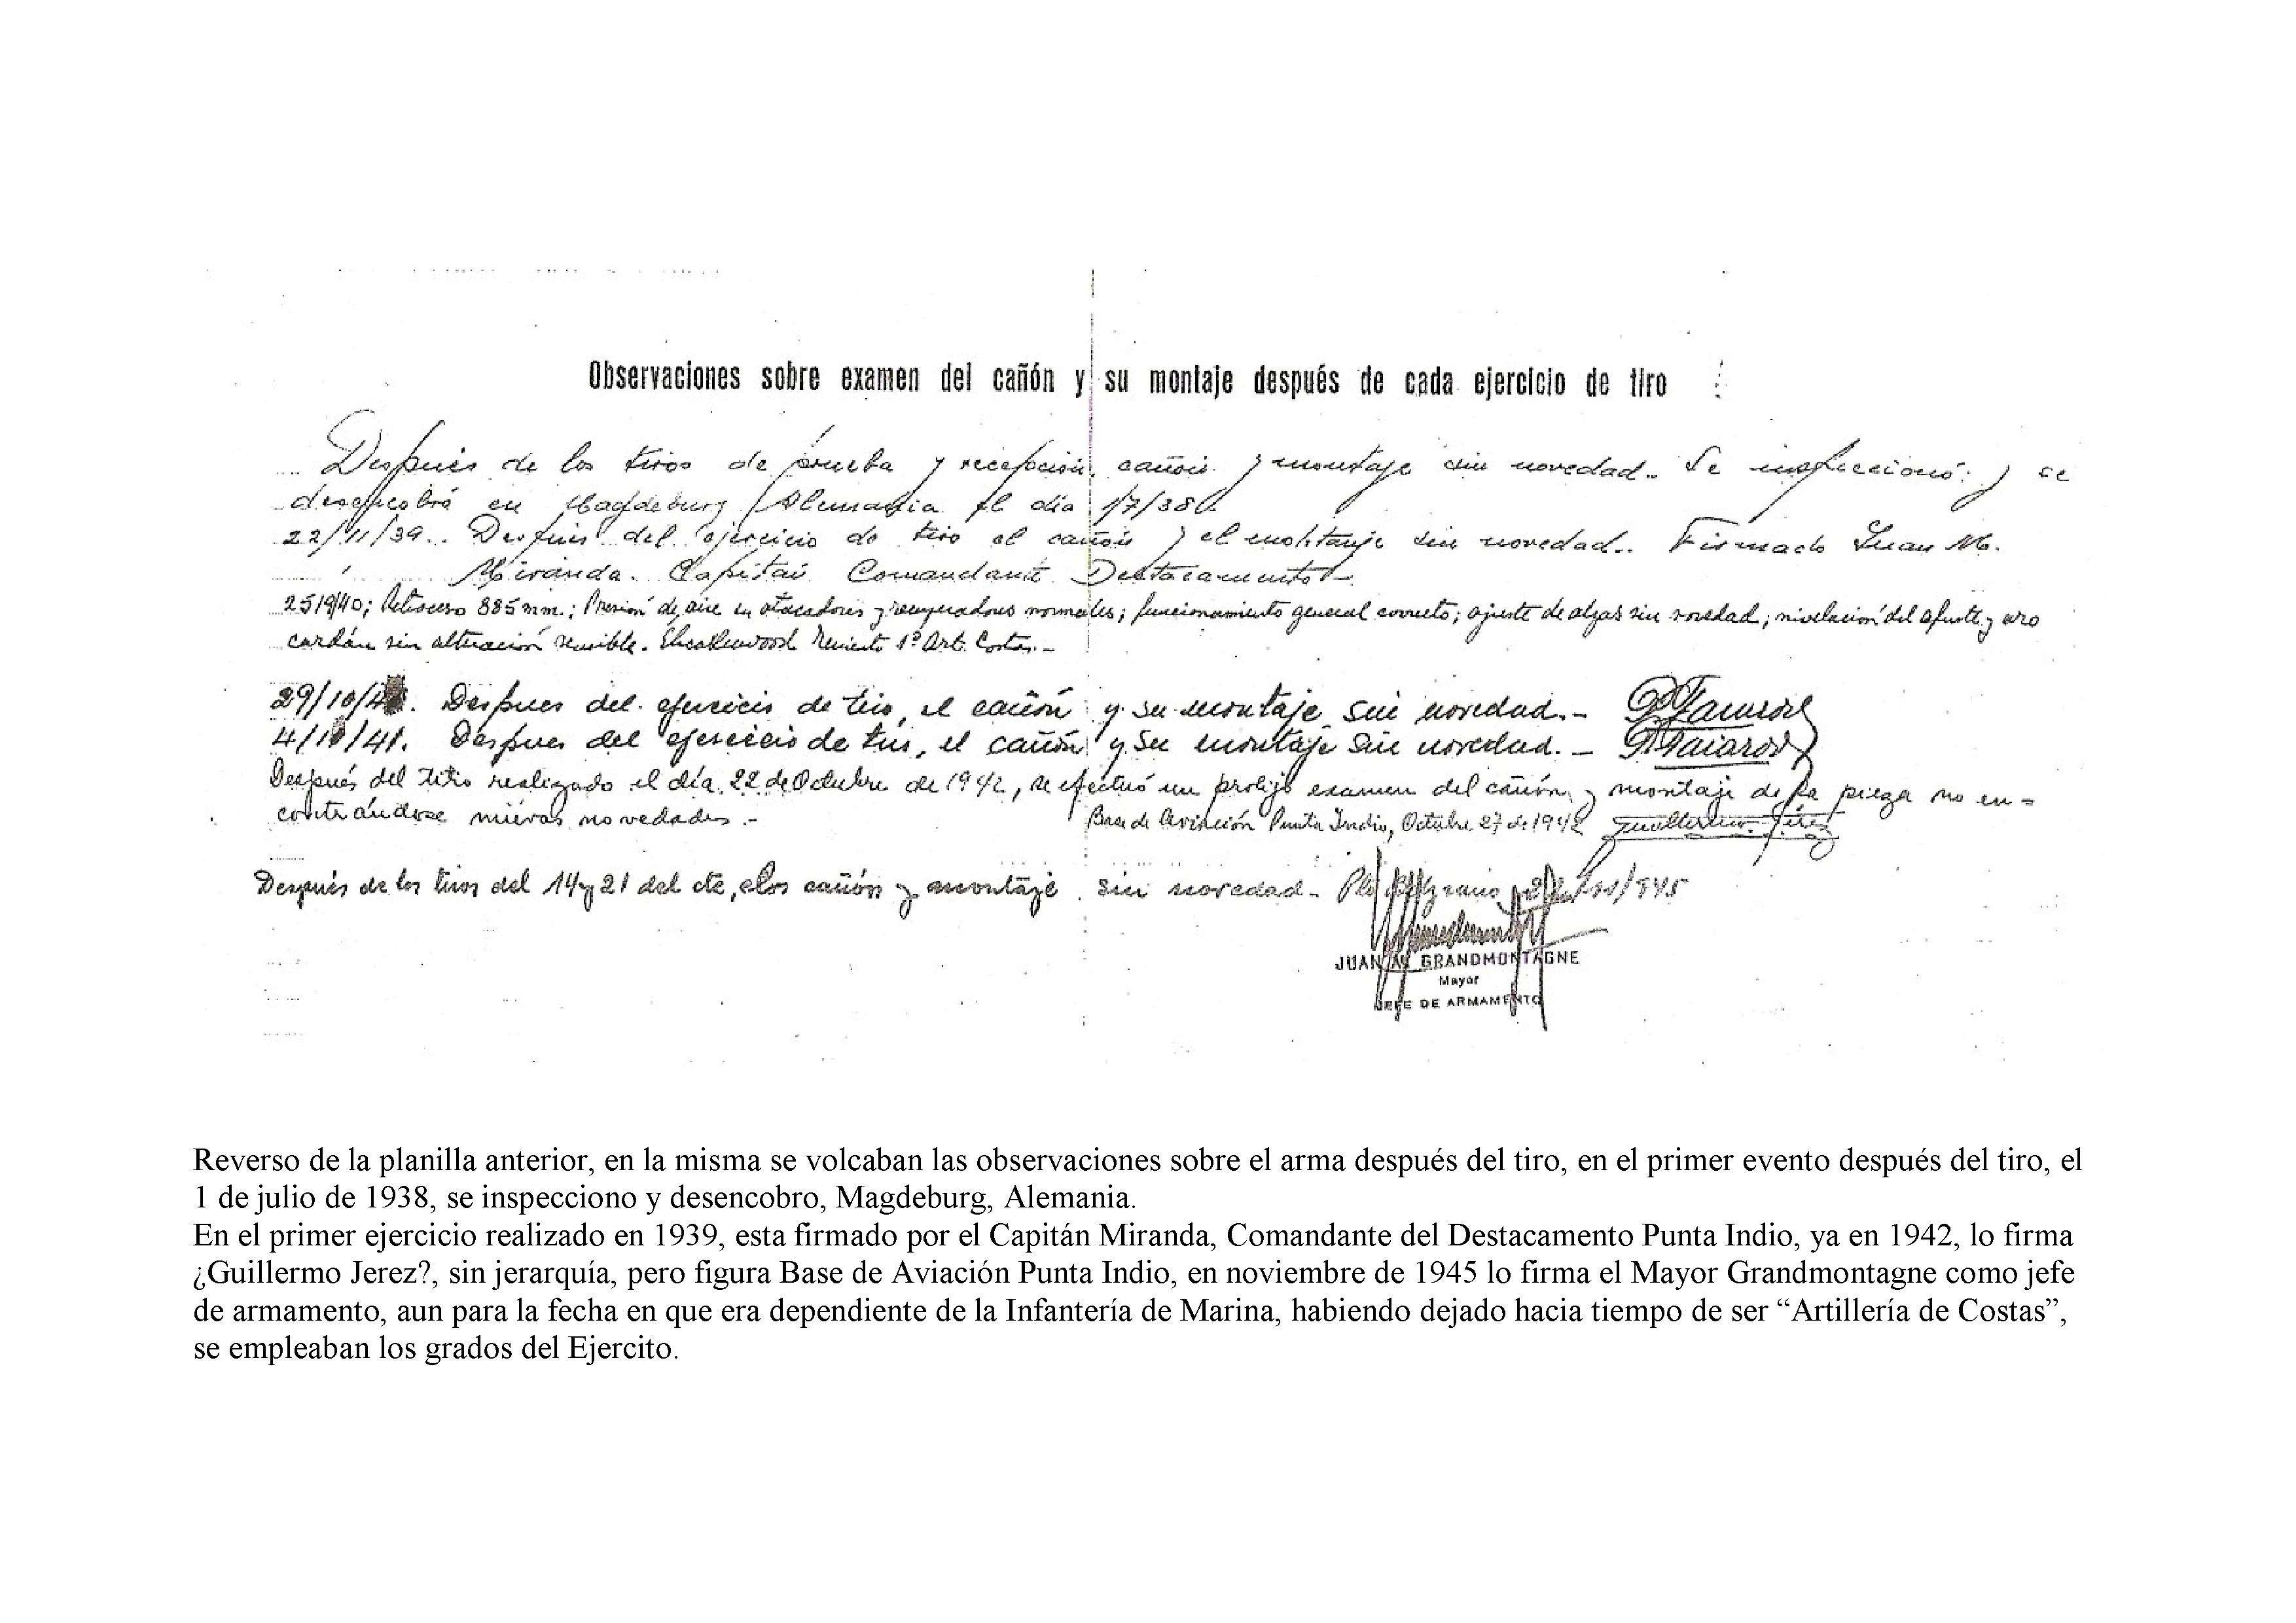 Observaciones sobre examen del cañón y su montaje después de cada ejercicio de tiro
Después de los tiros de prueba y recepción, cañón y montaje sin novedad. Se inspeccionó y se
desencobró en Magdeburg (Alemania el día 1/7/38.
22/11/39.. Después del ejercicio de tiro el cañón y el montaje sin novedad.. Firmado Juan M.
Miranda. Capitán Comandante Destacamento.-
25/9/40; Retroceso 885 mm.; Presión de aire en atacadores y recuperadores normales; funcionamiento general correcto; ajuste de alzas sin novedad; nivelación del afuste y aro
cardán sin alteración sensible. Teniente 1º Art. Costas.-
29/10/4 . Despues del ejercicio de tiro, el cañón y su montaje sin novedad.-
4/1 /41. Despues del ejercicio de tiro, el cañón y su montaje sin novedad.-
Después del tiro realizado el día 22 de Octubre de 1942, se efectuó un prolijo examen del cañón y montaje de la pieza no en=
contrándose nuevas novedades.-
Base de Aviación Punta Indio, Octubre 27 de 1942 Guillermo Jérez
Después de los tiros del 14 y 21 del cte, los cañón y montaje sin novedad- Pto Belgrano /945
JUAN GRANDMONTAGNE
Mayor
JEFE DE ARMAMENTO
Reverso de la planilla anterior, en la misma se volcaban las observaciones sobre el arma después del tiro, en el primer evento después del tiro, el
1 de julio de 1938, se inspecciono y desencobro, Magdeburg, Alemania.
En el primer ejercicio realizado en 1939, esta firmado por el Capitán Miranda, Comandante del Destacamento Punta Indio, ya en 1942, lo firma
¿Guillermo Jerez?, sin jerarquía, pero figura Base de Aviación Punta Indio, en noviembre de 1945 lo firma el Mayor Grandmontagne como jefe
de armamento, aun para la fecha en que era dependiente de la Infantería de Marina, habiendo dejado hacia tiempo de ser “Artillería de Costas”,
se empleaban los grados del Ejercito.